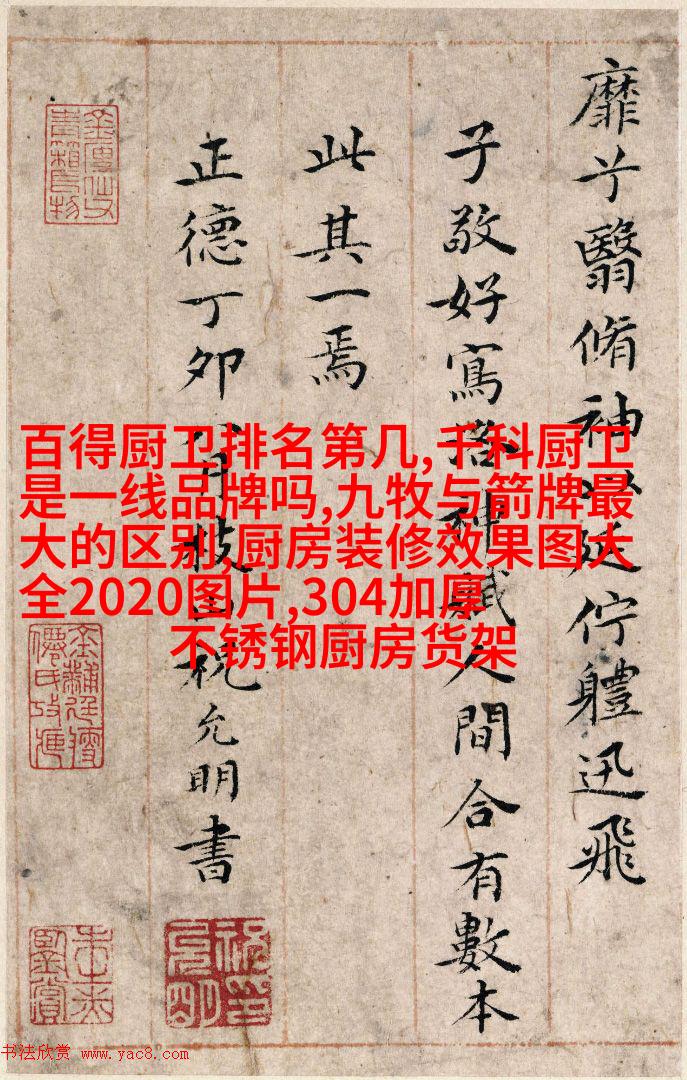 靡兮翳脩袖以延佇體迅飛
子敬好寫洛神賦人間合有數本
此其一焉
正德丁卯八月枝山祝允明書
百得厨卫排名第几,千科厨卫
是一线品牌吗,九牧与箭牌最
大的区别,厨房装修效果图大
全2020图片,304加厚
不锈钢厨房货架
书法欣赏 www.yac8.com